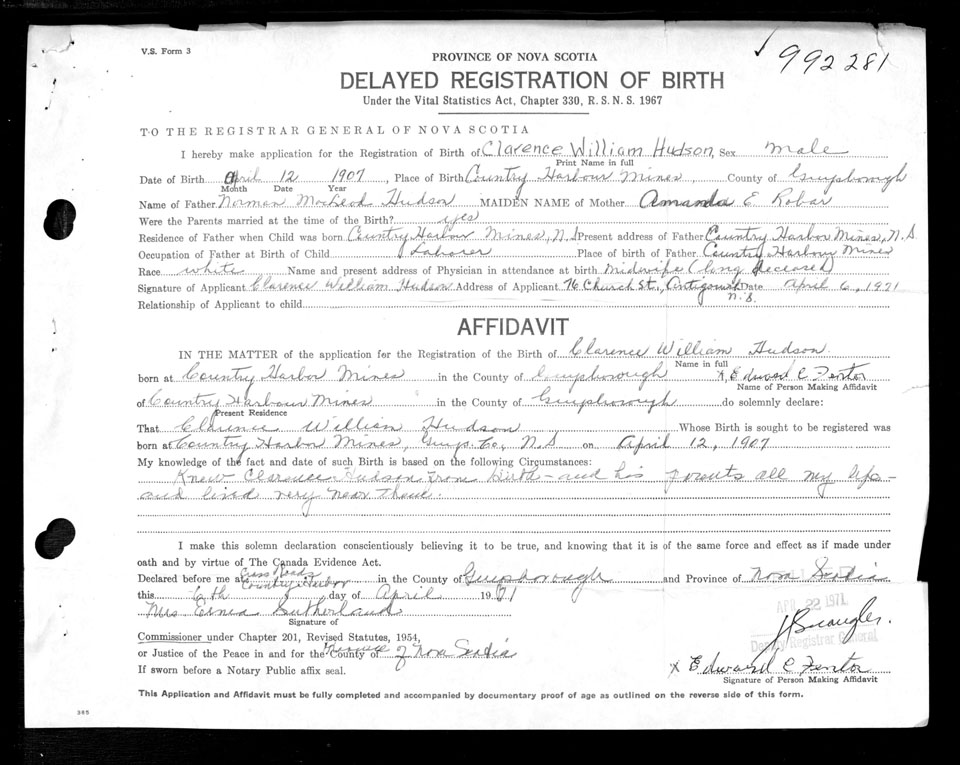 V.S. Form 3
992 281
PROVINCE OF NOVA SCOTIA
DELAYED REGISTRATION OF BIRTH
Under the Vital Statistics Act, Chapter 330, R.S.N.S. 1967
TO THE REGISTRAR GENERAL OF NOVA SCOTIA
I hereby make application for the Registration of Birth of Clarence William Hudson, Sex male
Print Name in full
Date of Birth April 12 1907 Place of Birth Country Harbour Mines, County of Guysborough
Month Date Year
Name of Father Norman MacLeod Hudson MAIDEN NAME of Mother Amanda E Robar
Were the Parents married at the time of the Birth? yes
Residence of Father when Child was born Country Harbor Mines, N.S Present address of Father Country Harbor Mines, N.S.
Occupation of Father at Birth of Child Laborer Place of birth of Father Country Harbour Mines
Race white Name and present address of Physician in attendance at birth Midwife (long deceased)
Signature of Applicant Clarence William Hudson Address of Applicant 76 Church St., Antigonish Date April 6, 1971
N.S.
Relationship of Applicant to child
AFFIDAVIT
IN THE MATTER of the application for the Registration of the Birth of Clarence William Hudson
Name in full
born at Country Harbor Mines in the County of Guysborough X, Edward C Fenton
Name of Person Making Affidavit
of Country Harbour Mines in the County of Guysborough do solemnly declare:
Present Residence
That Clarence William Hudson Whose Birth is sought to be registered was
born at Country Harbor Mines, Guys. Co., N.S on April 12, 1907
My knowledge of the fact and date of such Birth is based on the following Circumstances:
Knew Clarence Hudson from birth - and his parents all my life -
and lived very near them.
I make this solemn declaration conscientiously believing it to be true, and knowing that it is of the same force and effect as if made under
oath and by virtue of The Canada Evidence Act.
Declared before me at Cross Roads Country Harbor in the County of Guysborough and Province of Nova Scotia
this 6th day of April 1971
APR 22 1971
Mrs Sutherland
Signature of
Deputy Registrar General
Commissioner under Chapter 201, Revised Statutes, 1954,
or Justice of the Peace in and for the County of Province of Nova Scotia
If sworn before a Notary Public affix seal.
X Edward C Fenton
Signature of Person Making Affidavit
This Application and Affidavit must be fully completed and accompanied by documentary proof of age as outlined on the reverse side of this form.
385